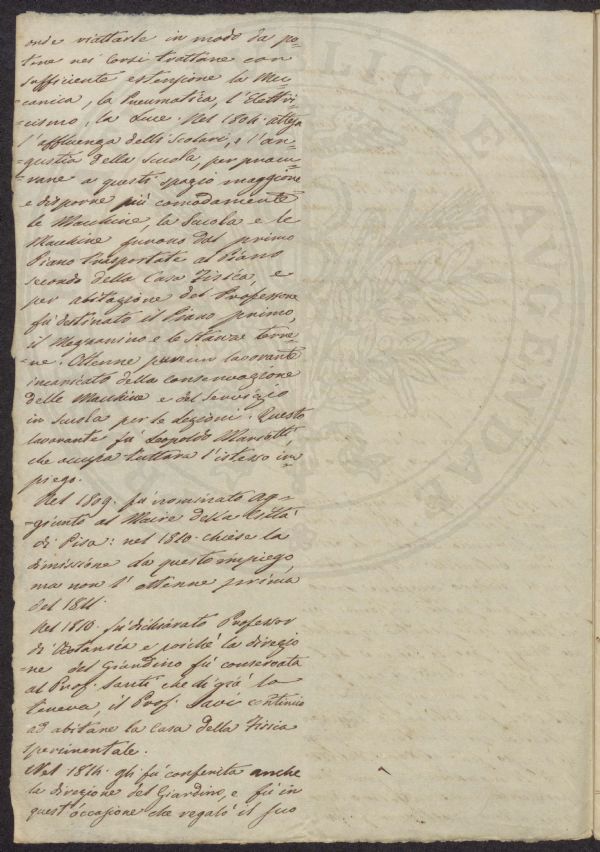 onde riattarle in modo da po-
tere nei Corsi trattare con
sufficiente estensione la Mec-
=canica, la Pneumatica, l'Elettri-
=cismo, la Luce. Nel 1804. attesa
l'affluenza delli Scolari, e l'an-
=gustia della Scuola, per procu-
=rare a questi spazio maggiore
e disporre più comodamente
le Macchine, la Scuola e le
Macchine furono dal primo
Piano trasportate al Piano
secondo della Casa Fisica, e
per abitazione del Professore
fù destinato il Piano primo,
il Mezzanino e le Stanze terre-
=ne. Ottenne pure un lavorante
incaricato della conservazione
delle Macchine e del servizio
in scuola per le Lezioni. Questo
lavorante fù Leopoldo
che occupa tuttora l'istesso im-
piego.
Nel 1809. fù nominato Ag-
=giunto al Maire della Città
di Pisa: nel 1810. chiese la
dimissione da questo impiego
ma non l'ottenne prima
del 1811.
Nel 1810. fù dichiarato Professor
di Botanica e poichè la direzio
=ne del Giardino fù conservata
al Prof. Santi che di già la
teneva, il Prof. Savi continuò
ad abitare la Casa della Fisica
sperimentale.
Nel 1814. gli fù conferita anche
la direzione del Giardino, e fù in
quest'occasione che regalò il suo
REI PUBLICAE AUGENDAE